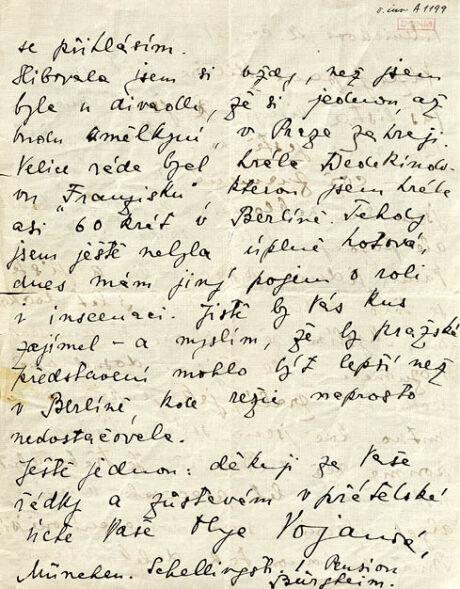 č. inv. A 1199
se přihlásím.
Slibovala jsem si vždy, než jsem
byla u divadla, že si jednou, až
budu umělkyní, v Praze zahraji.
Velice ráda bych hrála Wedekindo-
vu "Franzisku", kterou jsem hrála
asi 60 krát v Berlíně. Tehdy
jsem ještě nebyla úplně hotová,
dnes mám jiný pojem o roli
i inscenaci. Jistě by Vás kus
zajímal – a myslím, že by pražské
představení mohlo být lepší než
v Berlíně, kde režie naprosto
nedostačovala.
Ještě jednou: děkuji za Vaše
řádky a zůstávám v přátelské
úctě Vaše Mye Vojanová,
München. Schellingstr. 1. Pension
Bürgheim.